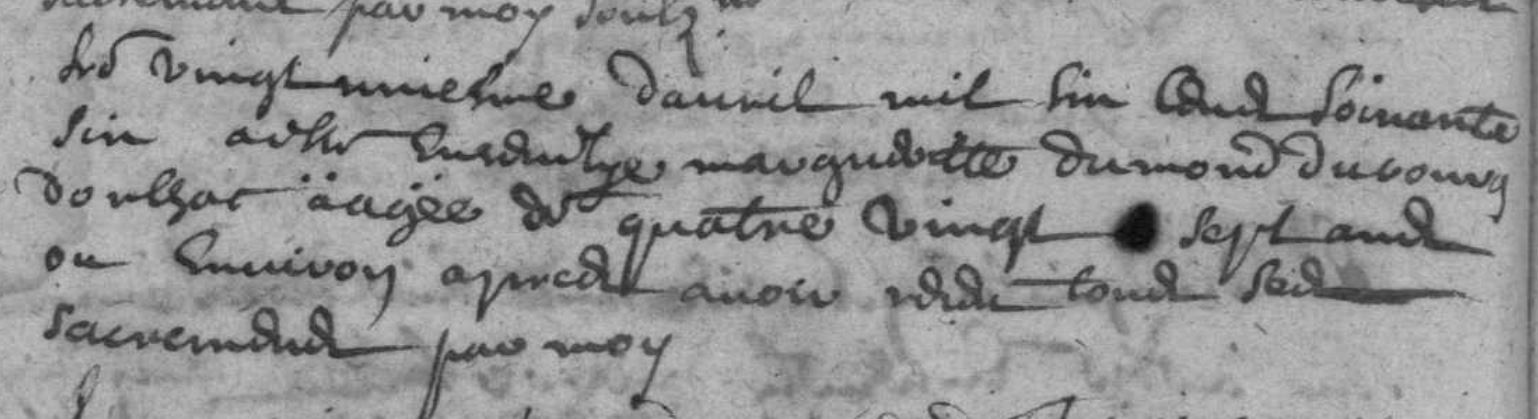 sacrement par moy soubz
Le vingtuniesme d'auril mil sin Cens soixante
sin a esté Enseuelye margueritte dumond du bourg
doulhac aagée de quatre vingt sept ans
ou Enuiron apres auoir receu tous ses
sacremens par moy